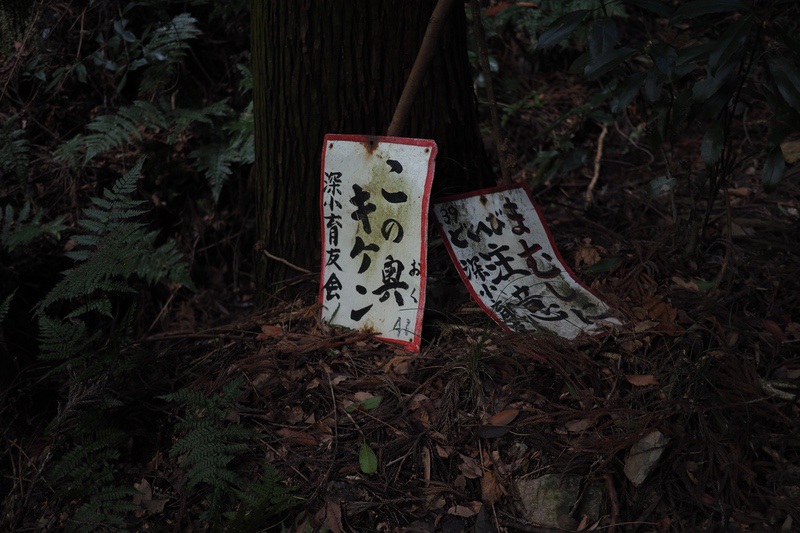 この奥
おく
キケン
深小育友会
39
まむしに
注意
深小